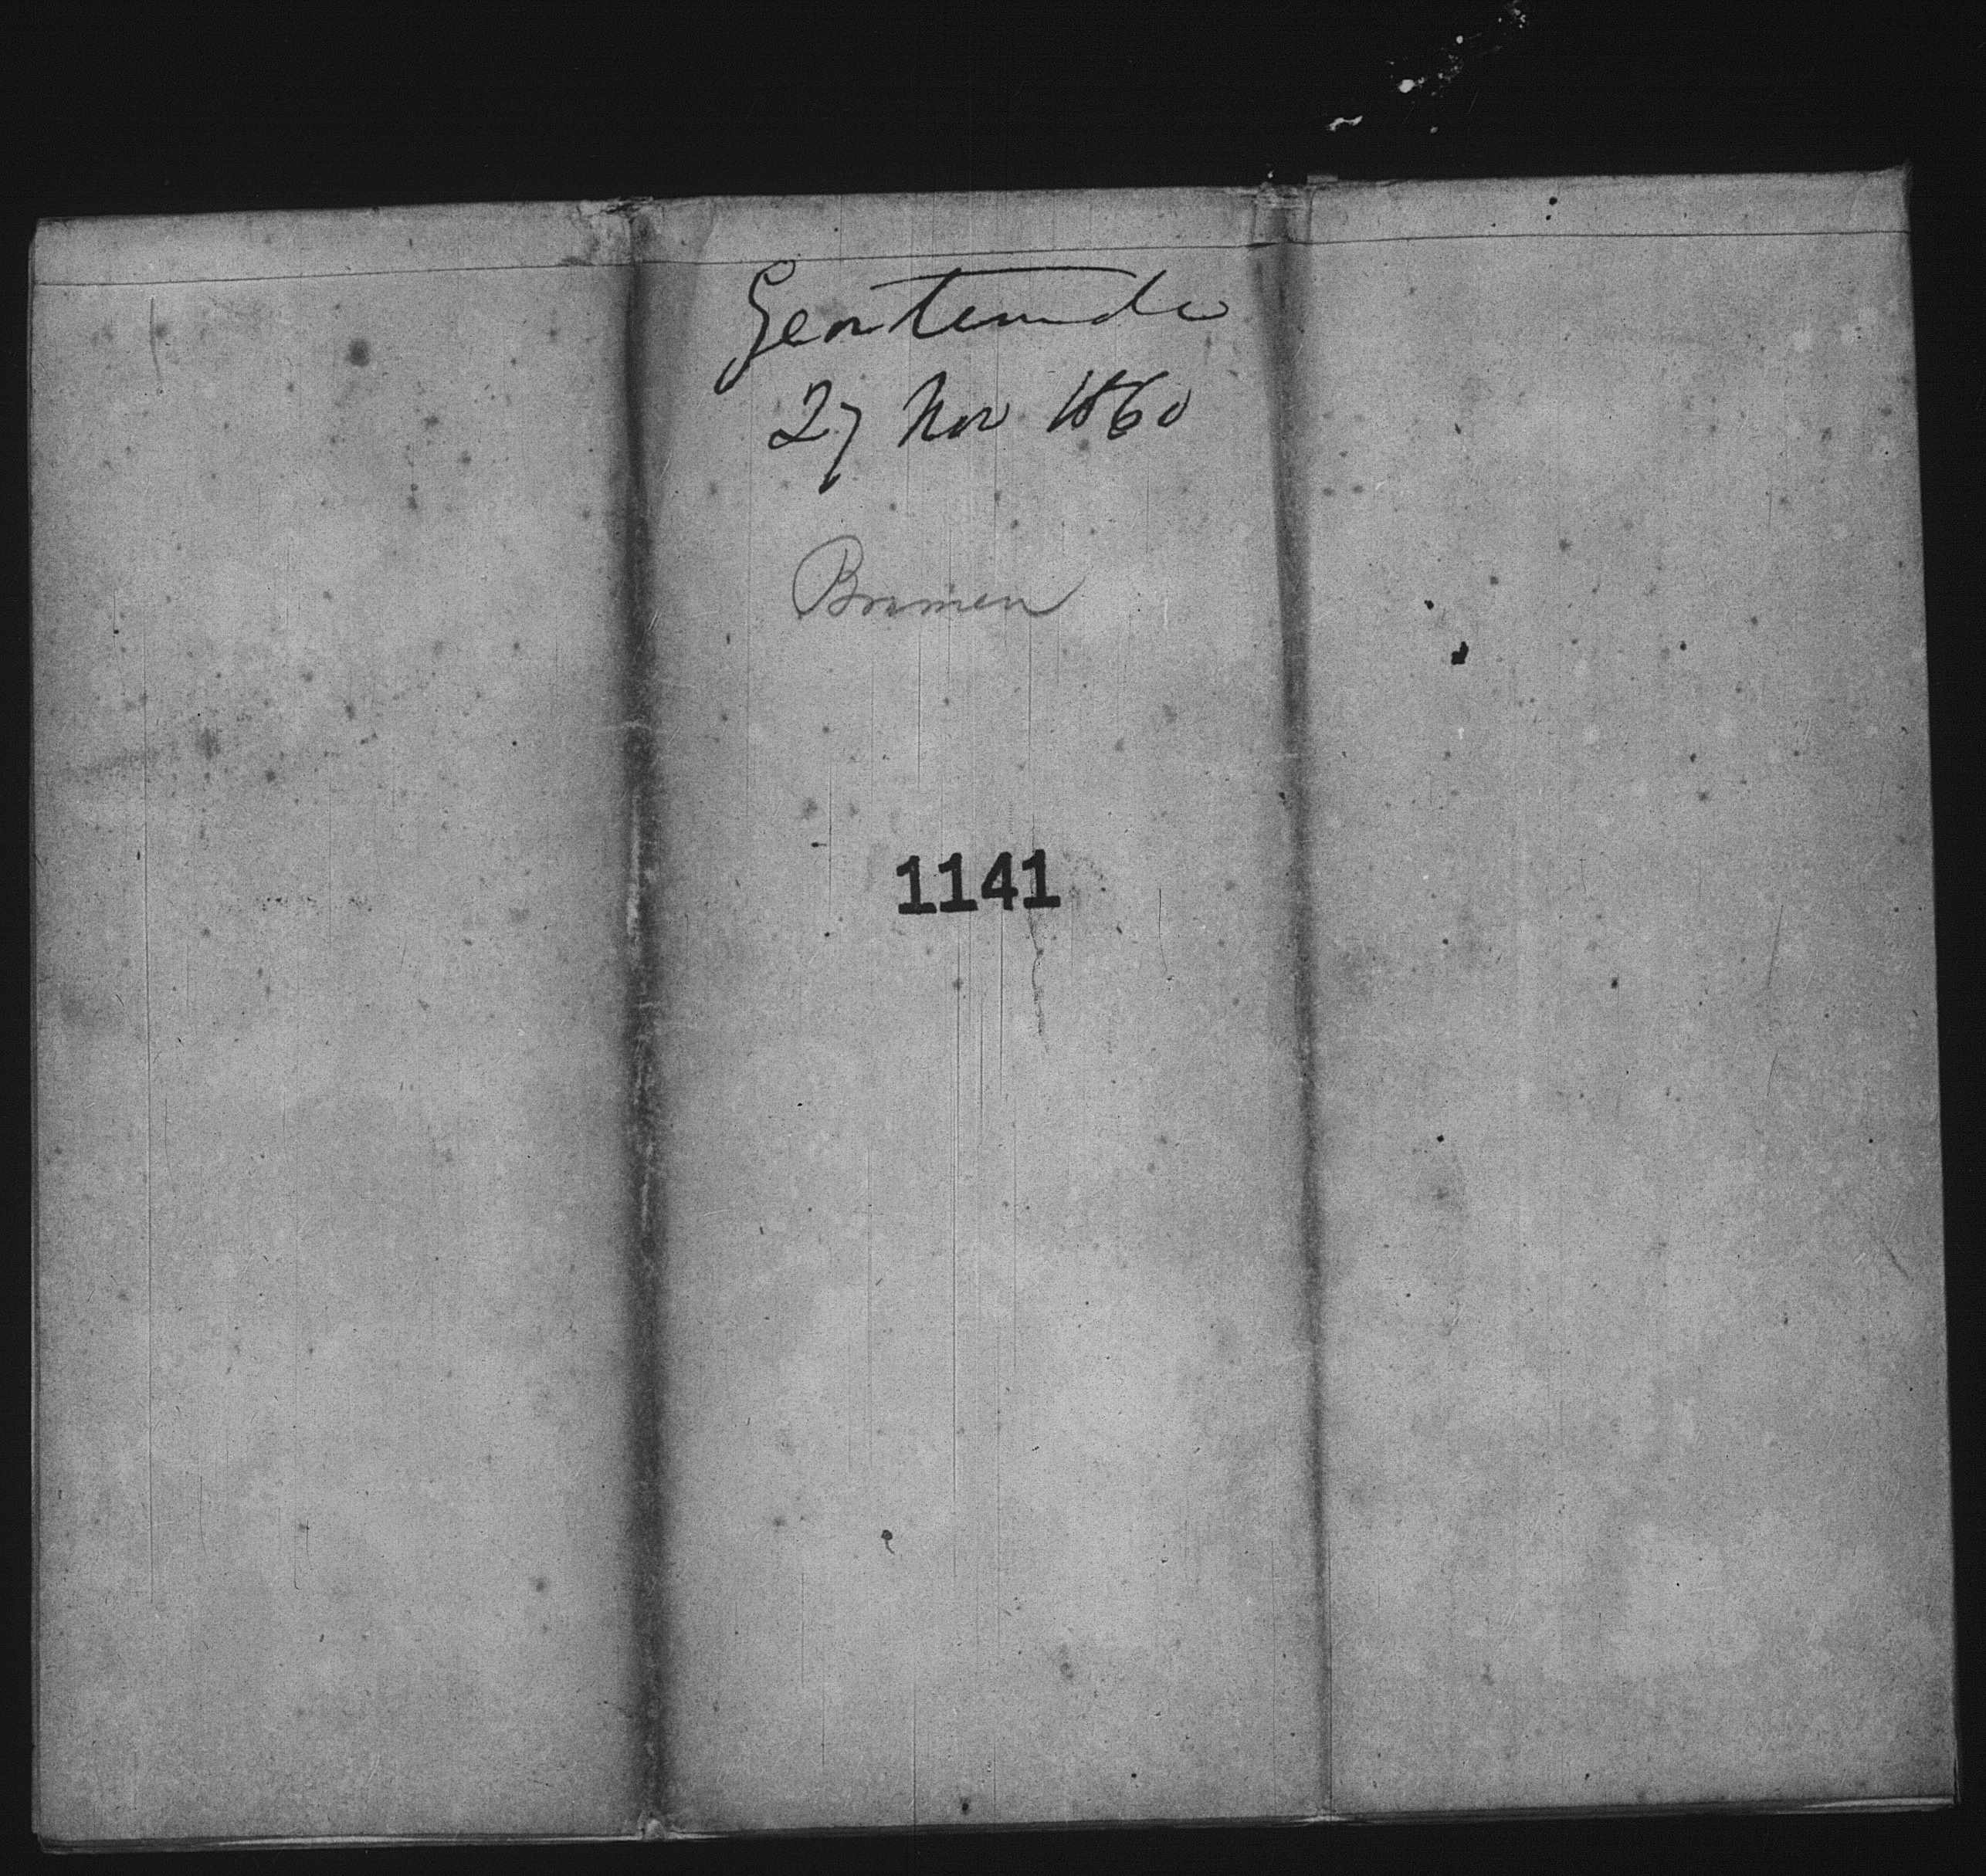 Geestemunde
27 Nov 1860
Bremen
1141